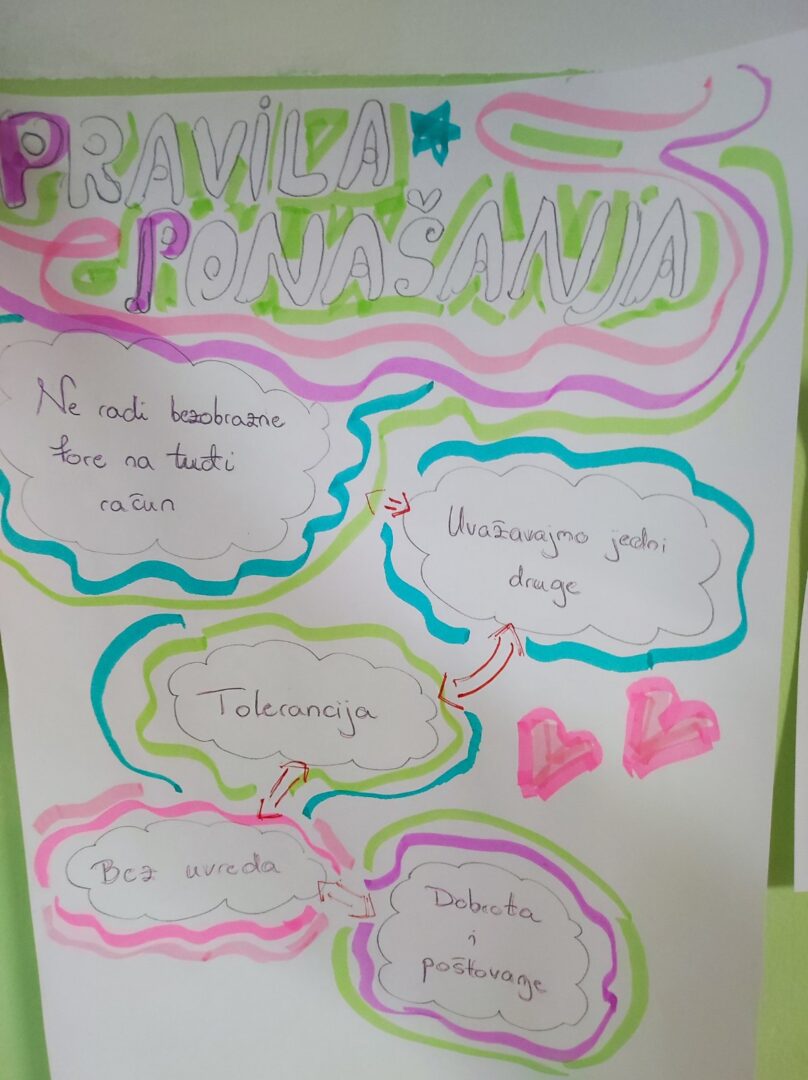 PRAVILA
PONAŠANJA
Ne radi bezobrazne
fore na tuđi
račun
Uvažavajmo jedni
druge
Tolerancija
Bez uvreda
Dobrota
i
poštovanje